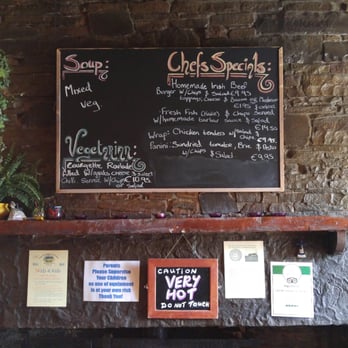 Soup:
Mixed
Veg
Vegetarian:
Courgette Roulade
filled w/apple, cheese & sweet
Chilli Sauce w/chips €10.95
or Salad
Chefs Specials:
Homemade Irish Beef
Burger w/Chips & Salad €9.95
Toppings, Cheese & Bacon or Mushroom
€1.95
Fresh Fish (Hake) & Chips Served
w/homemade tartar sauce & Salad
€14.50
Wrap: Chicken tenders w/Salad
Chips €9.95
Panini: Sundried tomato, Brie & Pesto
w/chips & Salad €9.95
Parents
Please Supervise
Your Children
as use of equipment
is at your own risk
Thank You!
CAUTION
VERY
HOT
DO NOT TOUCH